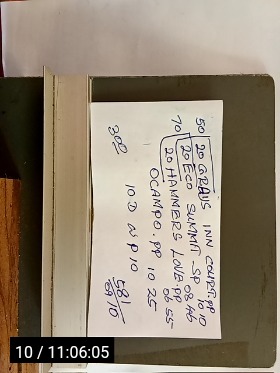 50 20 GRAUS INN COURT PP 10 10
20 ECO SUMMIT - SP 08 46
70 20 HAMMERS LOVE. PP 06 55
OCAMPO. PP 10 25
300
10 D W P 10
10 / 11:06:05